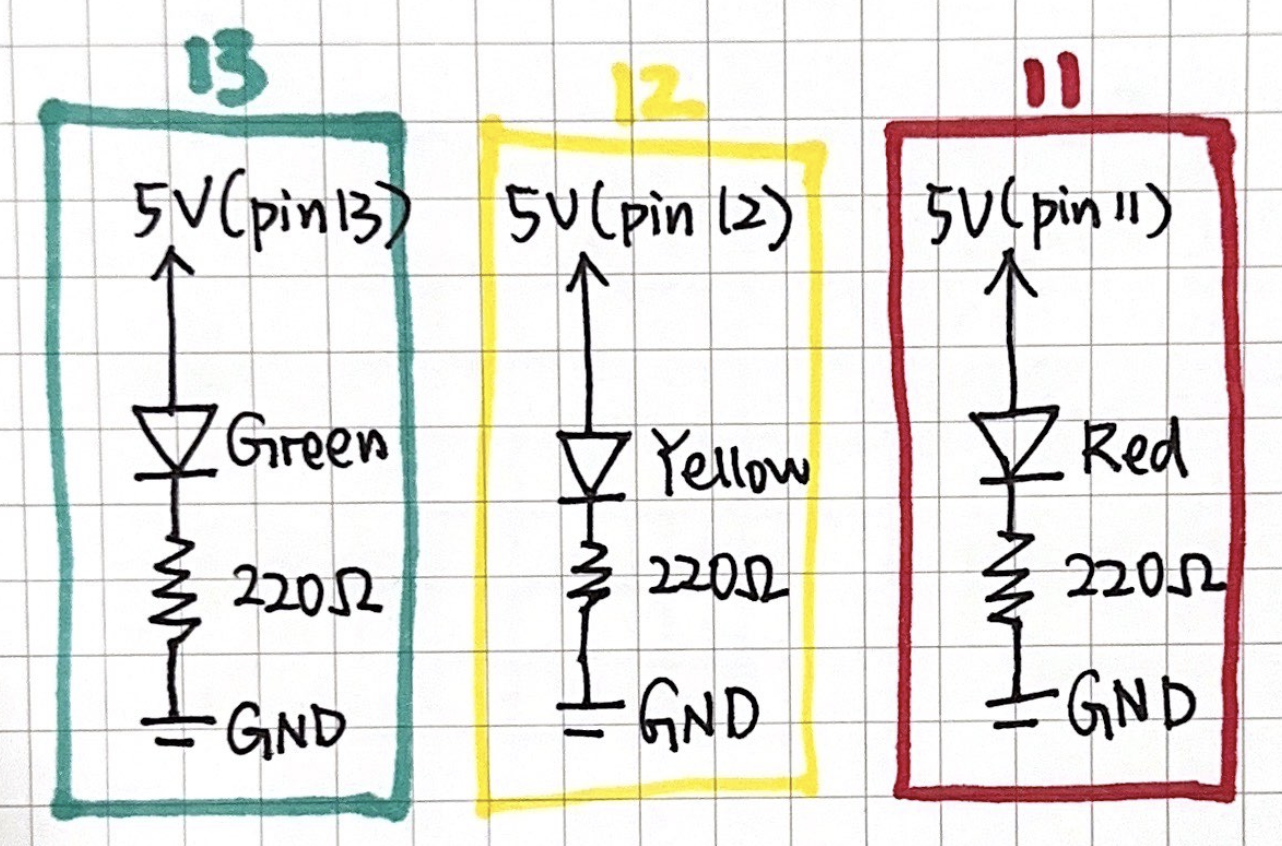 13
5V(pin13)
Green
220Ω
GND
12
5V(pin 12)
Yellow
220Ω
GND
11
5V(pin 11)
Red
220Ω
GND